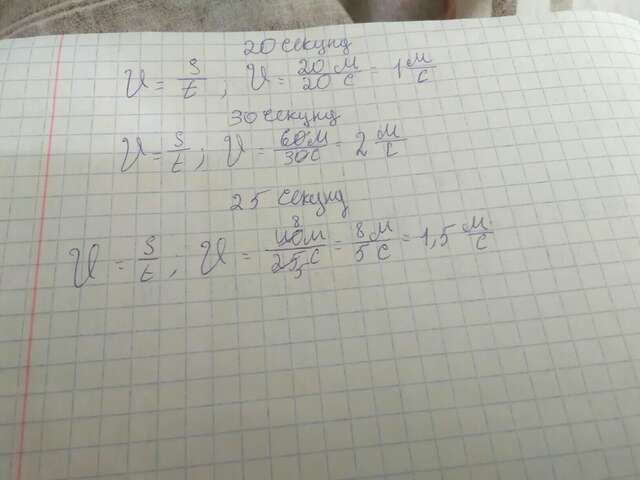 20 секунд
V = S/t ; V = 20 м/20 с = 1 м/с
30 секунд
V = S/t ; V = 60 м/30 с = 2 м/с
25 секунд
V = S/t ; V = 40 м/25 с = 8 м/5 с = 1,5 м/с